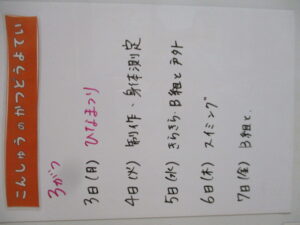 こんしゅうのかつどうよてい
3がつ
3日(月) ひなまつり
4日(火) 制作・身体測定
5日(水) きらきら・B組と戸外
6日(木) スイミング
7日(金) B組と、